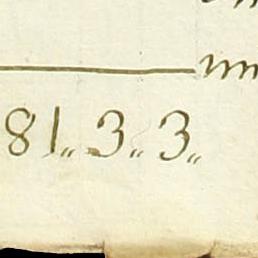 81„ 3„ 3„